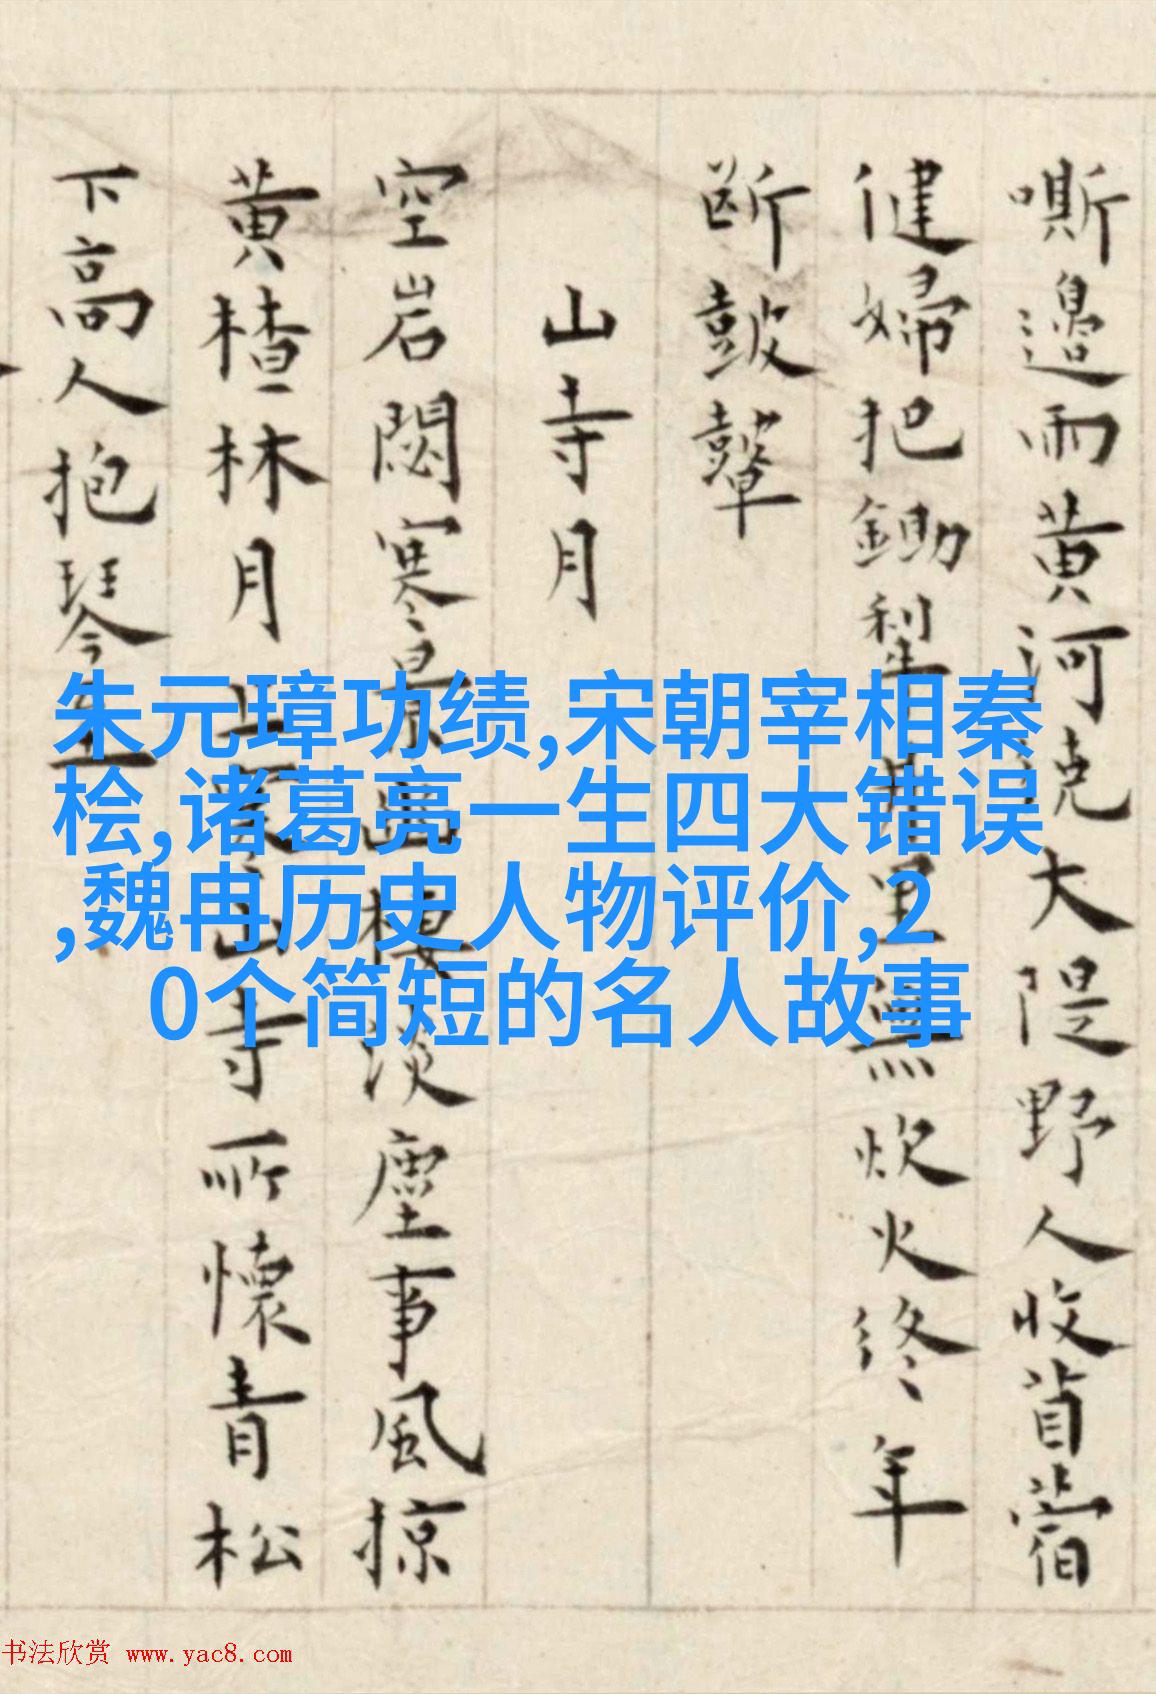 嘶邉雨黄河克大隄野人收首蓿
健婦把鋤犁井里無炊火終年
断鼓鼙
山寺月
空岩閟寒景樓淡塵事風掠
黄楂林月山寺所懷青松
下高人抱琴坐
朱元璋功绩,宋朝宰相秦
桧,诸葛亮一生四大错误
,魏冉历史人物评价,2
0个简短的名人故事
书法欣赏 www.yac8.com